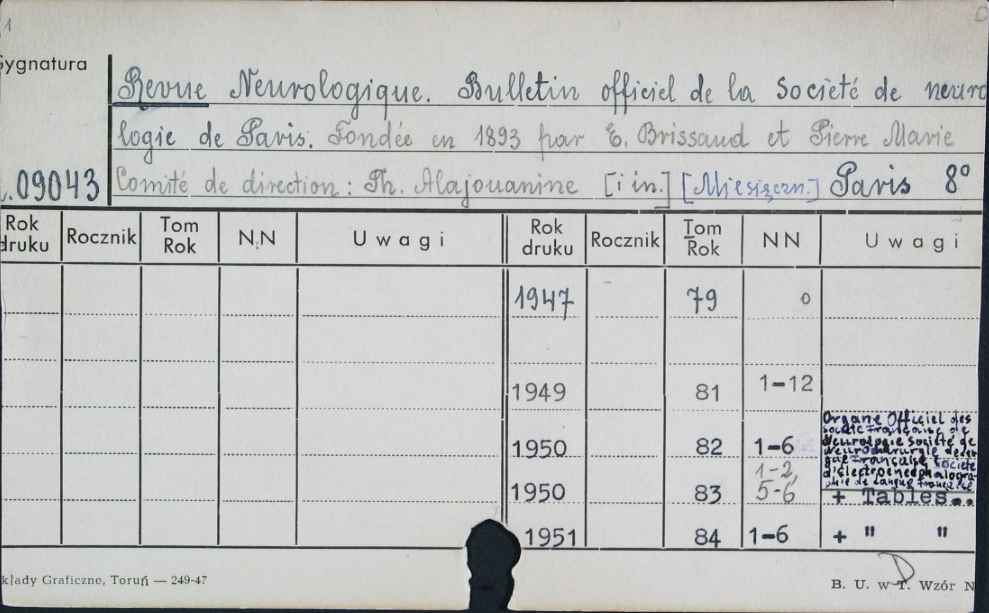 1
Sygnatura
Revue Neurologique. Bulletin officiel de la Société de neuro
logie de Paris. Fondée en 1893 par E. Brissaud et Pierre Marie
.09043 Comité de direction: Th. Alajouanine [i in.] [Miesięczn.] Paris 8°
Rok druku Rocznik Tom Rok N.N Uwagi Rok druku Rocznik Tom Rok NN Uwagi
1947 79 0
1949 81 1-12
Organe Officiel des
Société Française de
1950 82 1-6 Neurologie Société de
Neurochirurgie de
gue Française Société
1-2, d'électroencéphalogra
phie de Langue Française
1950 83 5-6 + Tables..
1951 84 1-6 + " "
kłady Graficzne, Toruń — 249-47
B. U. w T. Wzór N